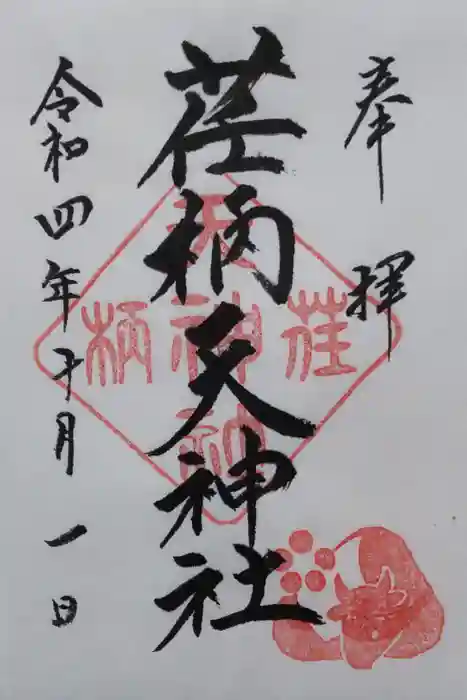 奉拝
荏柄天神社
令和四年十月一日
荏柄